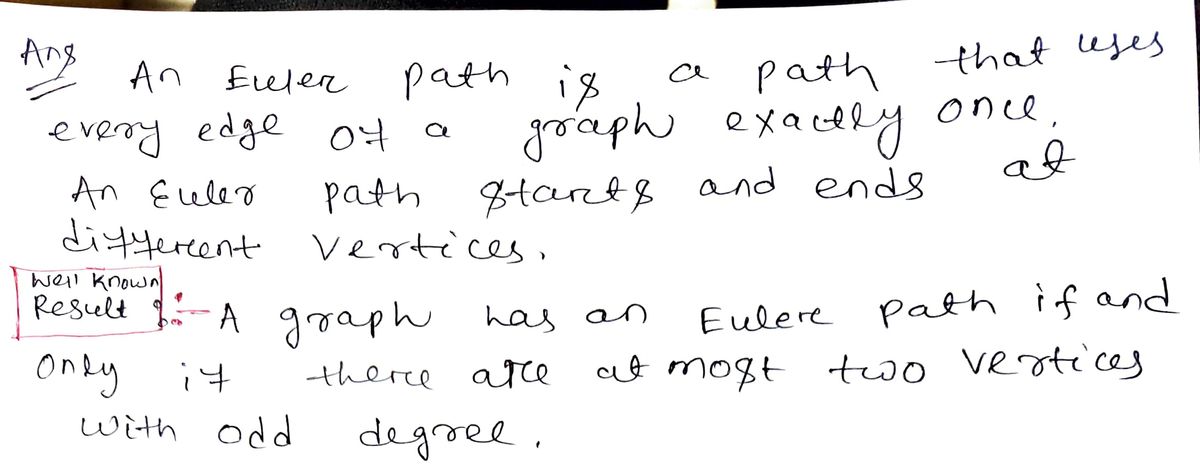 Ans
An Euler path is a path that uses
every edge of a graph exactly once.
An Euler path starts and ends at
different vertices.
Well known
Result :- A graph has an Euler path if and
only if there are at most two vertices
with odd degree.